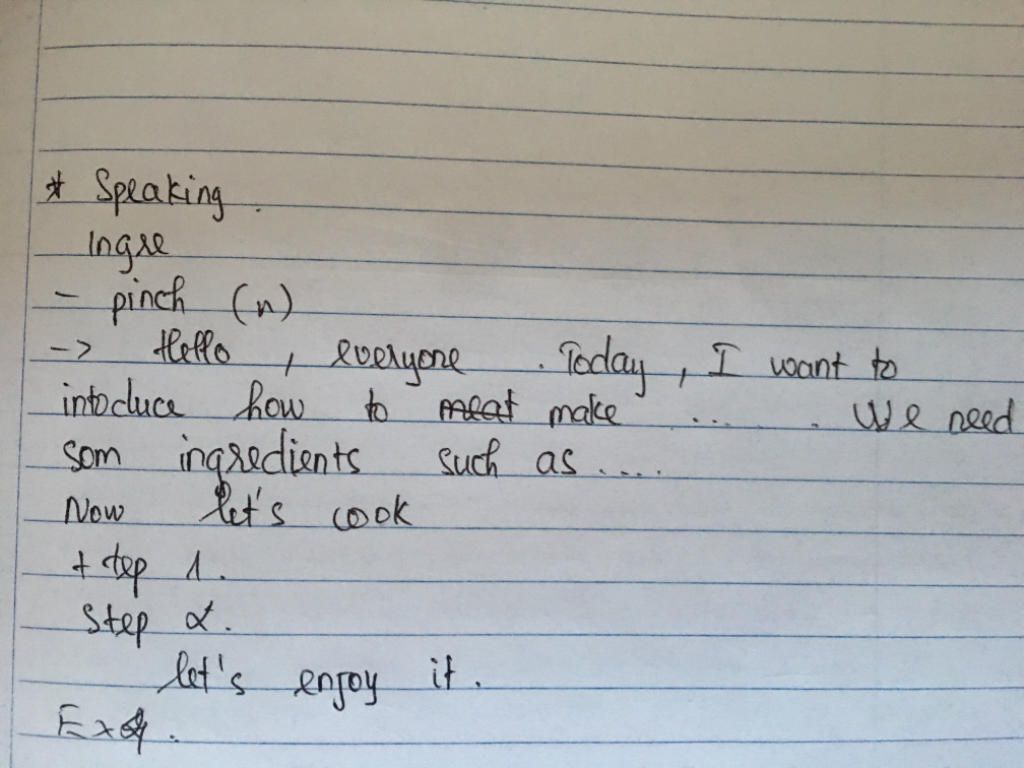 * Speaking.
Ingre
- pinch (n)
-> Hello, everyone. Today, I want to
intoduce how to meat make .... . We need
som ingredients such as ....
Now let's cook
+ tep 1.
Step 2.
let's enjoy it.